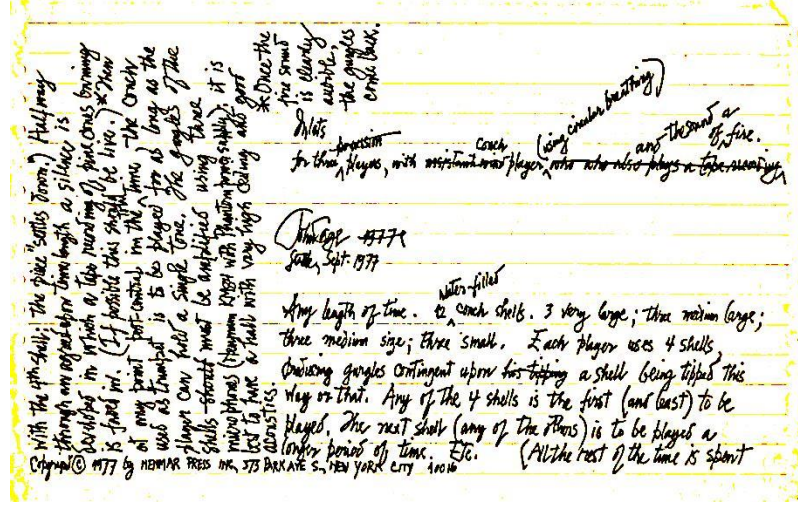 Inlets
(using circular breathing)
percussion conch and the sound of a fire.
for three players, with assistant wind player, who who also plays a tape recording
John Cage 1977
Seattle, Sept. 1977
water-filled
Any length of time. 12 conch shells. 3 very large; three medium large;
three medium size; three small. Each player uses 4 shells,
producing gurgles contingent upon his tipping a shell being tipped this
way or that. Any of the 4 shells is the first (and least) to be
played. The next shell (any of the others) is to be played a
longer period of time. Etc. (All the rest of the time is spent
with the 4th shell; the piece "settles down".) Halfway
through an agreed upon time length a silence is
developed in which a tape recording of pine cones burning
is faded in. (If possible this should be live.) * Then
at any point but central in the time, the conch
used as trumpet is to be played for as long as the
player can hold a single tone. The gurgles of the
shells should must be amplified using three
microphones (Neumann KM84 with Phantom power supply). it is
best to have a hall with very high ceiling and good
acoustics.
* Once the
fire sound
is clearly
audible,
the gurgles
come back.
Copyright © 1977 by HENMAR PRESS INC, 373 PARK AVE S., NEW YORK CITY 10016